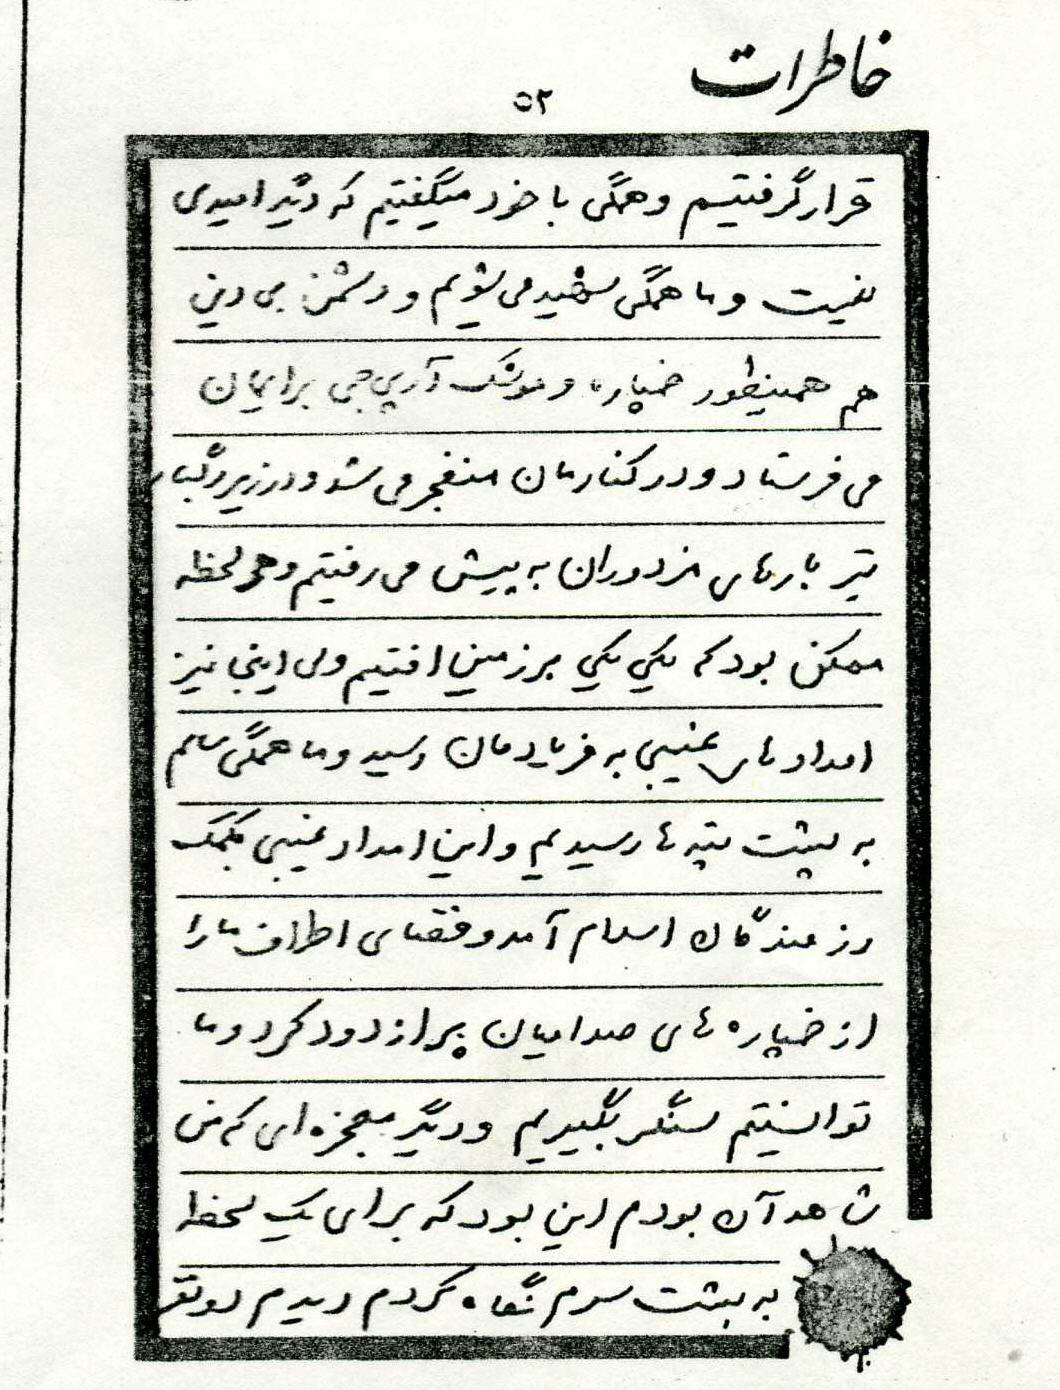 خاطرات
۵۲
قرار گرفتیم و همگی با خود میگفتیم که دیگر امیدی
نیست و ما همگی شهید می شویم و دشمن بی دین
هم همینطور خمپاره و موشک آرپی جی برایمان
می فرستاد و در کنارمان منفجر می شد و در زیر رگبار
تیر بارهای مزدوران به پیش می رفتیم و هر لحظه
ممکن بود که یکی یکی بر زمین افتیم ولی اینجا نیز
امدادهای غیبی به فریادمان رسید و ما همگی سالم
به پشت تپه ها رسیدیم و این امداد غیبی بکمک
رزمندگان اسلام آمد و فضای اطراف ما را
از خمپاره های صدامیان پر از دود کرد و ما
توانستیم سنگر بگیریم و دیگر معجزه ای که من
شاهد آن بودم این بود که برای یک لحظه
به پشت سرم نگاه کردم دیدم دو نفر